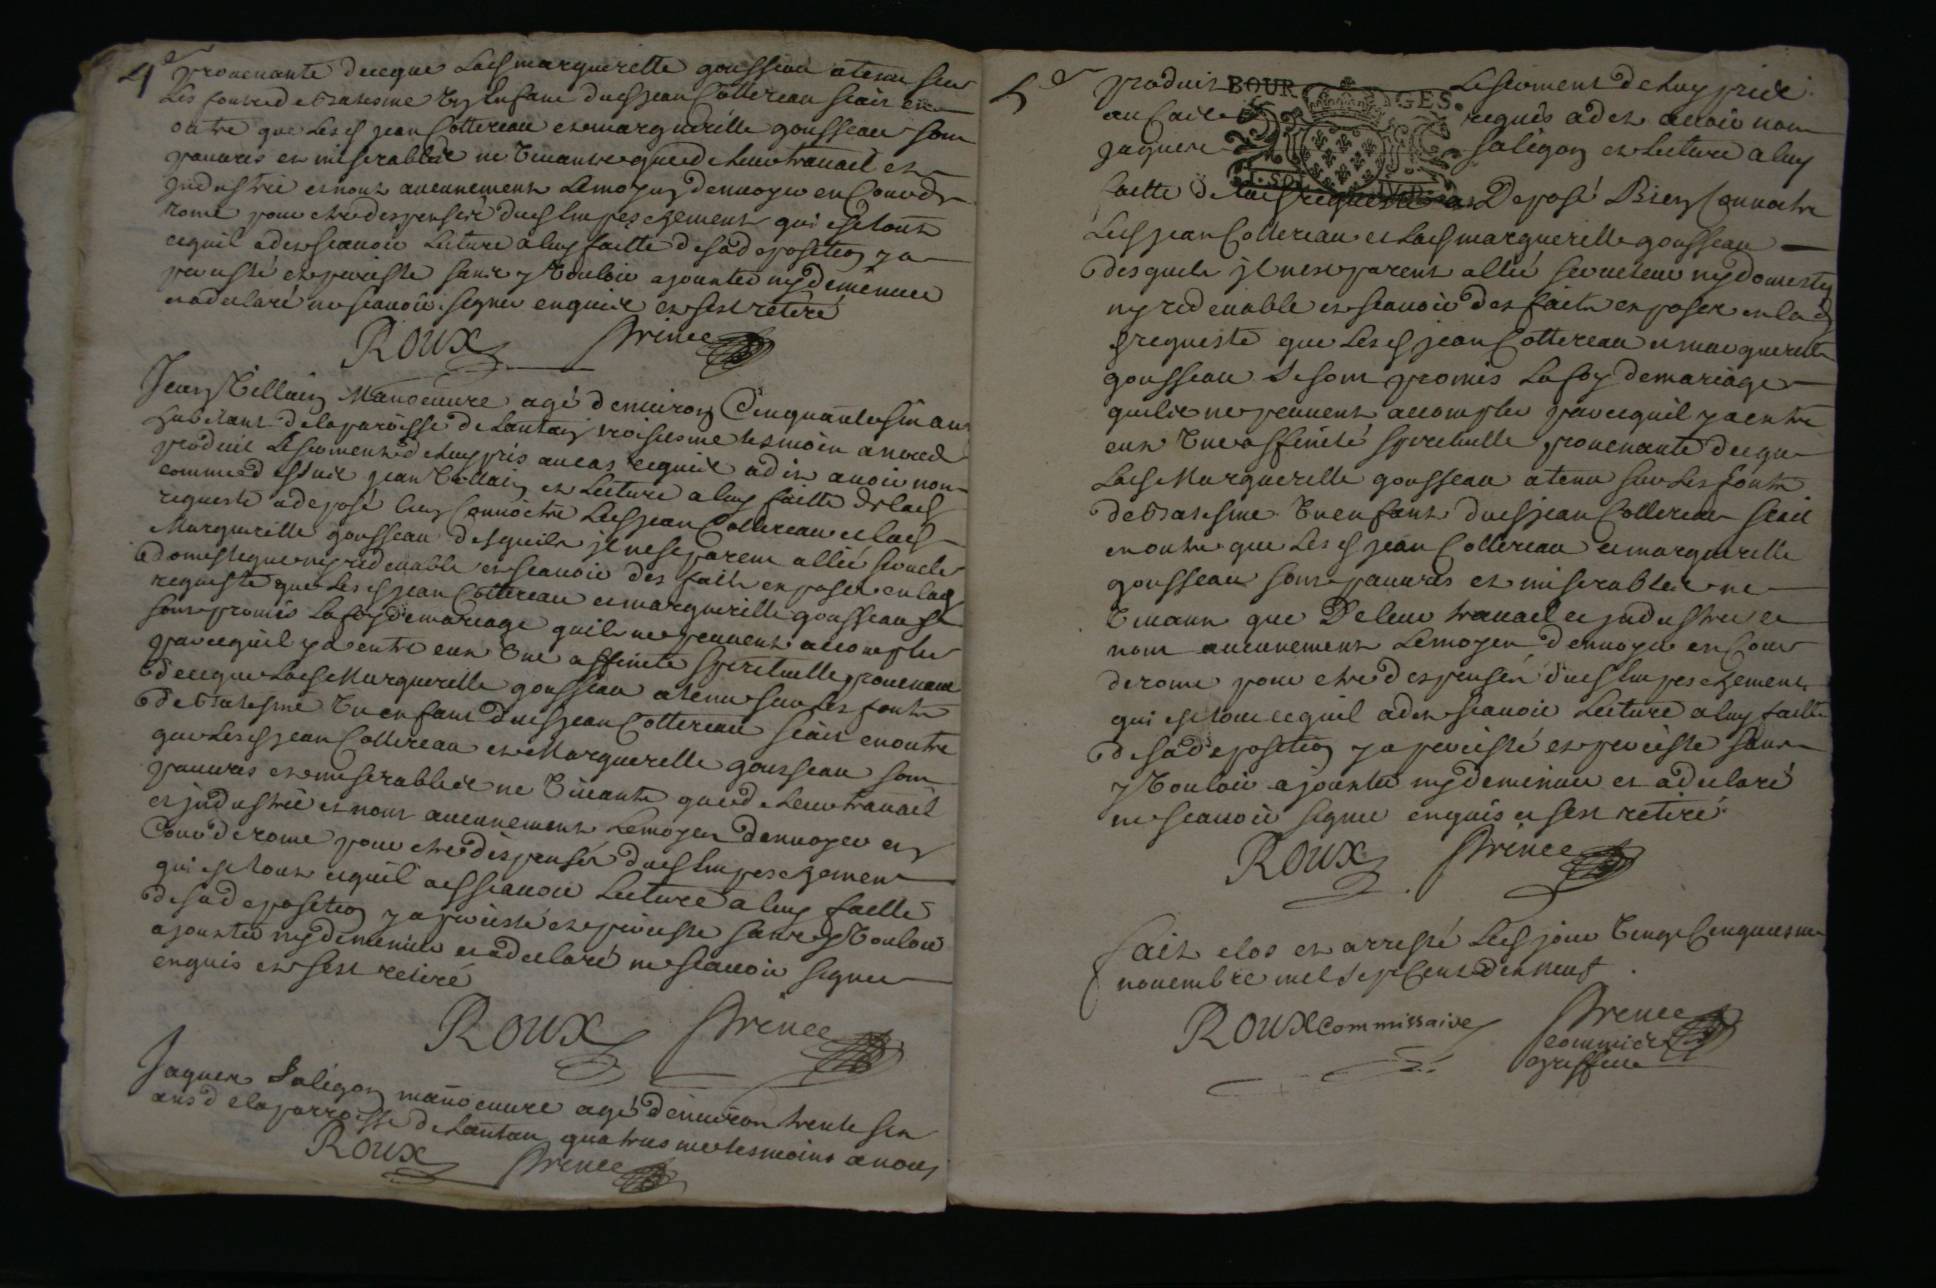 4e
provenante de ceque lad margueritte gousseau a tenu sur
les fonts de batesme un enfant dud jean Cottereau scait en
outre que lesd jean Cottereau et margueritte gousseau sont
pauvres et miserables ne vivants que de leur travail et
industrie et nont aucunement le moyen denvoyer en Cour de
rome pour etre dispensés dud empeschement qui est tout
cequil a dit scavoir lecture a luy faitte de sa deposition y a
persisté et persiste sans y vouloir ajouster ny deminuer
et a declaré ne scavoir signer enquis et sest retiré
Roux Prince
Jean Vellain Manoeuvre agé denviron Cinquante six ans
habitant de la paroisse de Lantan troisiesme tesmoin a nous
produit le serment de luy pris au cas requis a dit avoir nom
comme dessus jean Vellain et lecture a luy faitte de lad
requeste a deposé bien Connoitre led jean Cottereau et lad
Margueritte gousseau desquels il nest parent allié serviteur
domestique ny redevable et scavoir des faits exposes en lad
requeste que lesd jean Cottereau et margueritte gousseau se
sont promis la foy de mariage quils ne peuvent accomplir
parcequil y a entre eux une affinité spirituelle provenante
de ceque lad Margueritte gousseau a tenu sur les fonts
de batesme un enfant dud jean Cottereau scait en outre
que lesd jean Cottereau et Margueritte gousseau sont
pauvres et miserables ne vivants que de leur travail
et industrie et nont aucunement le moyen denvoyer en
Cour de rome pour etre dispensés dud empeschement
qui est tout cequil a dit scavoir lecture a luy faitte
de sa deposition y a persisté et persiste sans y vouloir
ajouster ny deminuer et a declaré ne scavoir signer
enquis et sest retiré
Roux Prince
Jaques Saligon manoeuvre agé denviron trente six
ans de la parroisse de Lantan quatriesme tesmoins a nous
Roux Prince
5e
produit BOURGES. le serment de luy pris
au cas requis a dit avoir nom
jaques saligon et lecture a luy
faitte de lad requeste a Deposé Bien Connoitre
led jean Cottereau et lad margueritte gousseau
desquels il nest parent allié serviteur ny domestiq
ny redevable et scavoir des faits exposes en lad
requeste que lesd jean Cottereau et marguerite
gousseau se sont promis la foy de mariage
quils ne peuvent accomplir parcequil y a entre
eux une affinité spirituelle provenante de ceque
lad Marguerite gousseau a tenu sur les fonts
de batesme un enfant dud jean Cottereau scait
en outre que lesd jean Cottereau et marguerite
gousseau sont pauvres et miserables ne
vivants que De leur travail et industrie et
nont aucunement le moyen denvoyer en Cour
de rome pour etre dispensés dud empeschement
qui est tout cequil a dit scavoir lecture a luy faitte
de sa deposition y a persisté et persiste sans
y vouloir ajouster ny deminuer et a declaré
ne scavoir signer enquis et sest retiré
Roux Prince
fait clos et arresté led jour vingt Cinquiesme
novembre mil sept Cent dix neuf
Roux commissaire Prince
commis
greffier